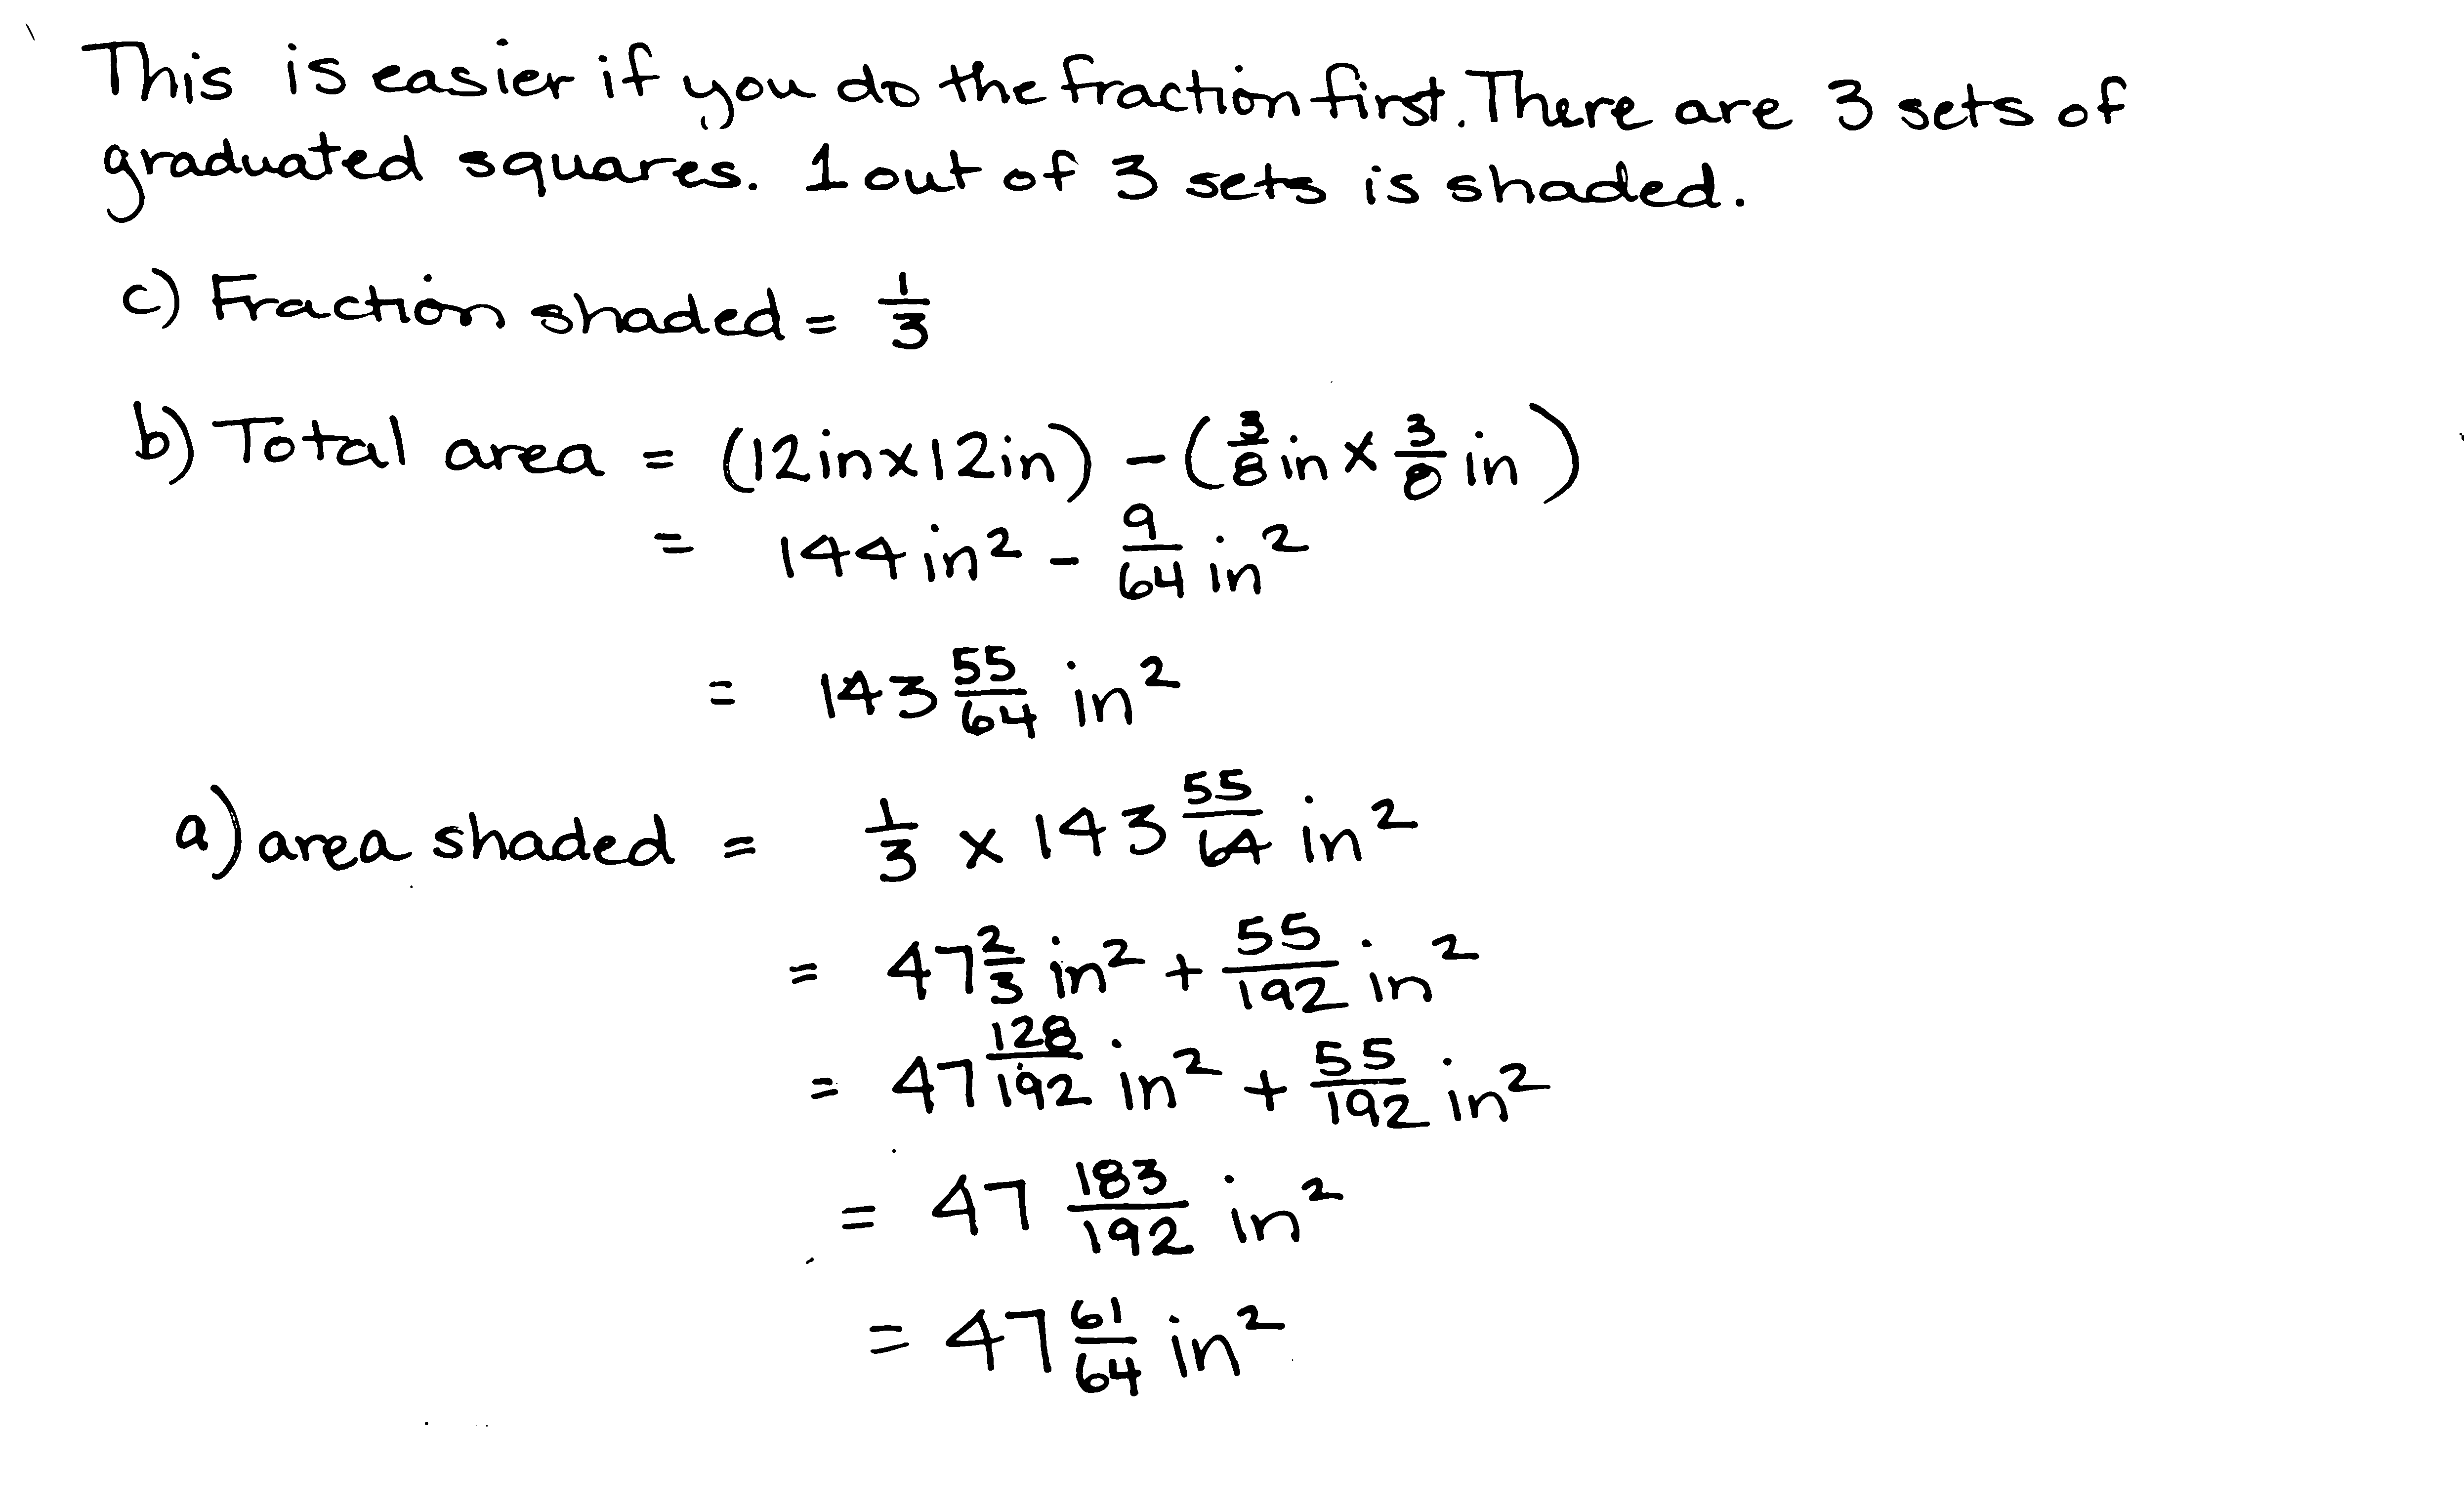 This is easier if you do the fraction first. There are 3 sets of
graduated squares. 1 out of 3 sets is shaded.
c) Fraction shaded = 1/3
b) Total area = (12in x 12in) - (3/8 in x 3/8 in)
= 144 in² - 9/64 in²
= 143 55/64 in²
a) area shaded = 1/3 x 143 55/64 in²
= 47 2/3 in² + 55/192 in²
= 47 128/192 in² + 55/192 in²
= 47 183/192 in²
= 47 61/64 in²